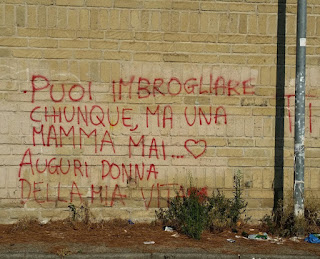 PUOI IMBROGLIARE
CHIUNQUE, MA UNA
MAMMA MAI...♡
AUGURI DONNA
DELLA MIA VITA